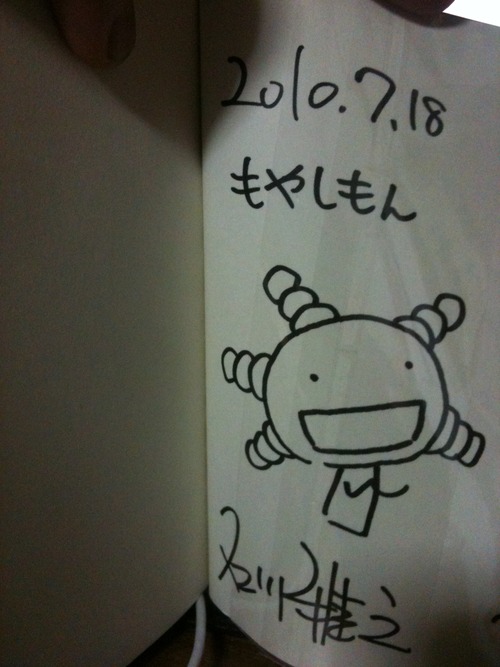 2010.7.18
もやしもん
石川雅之